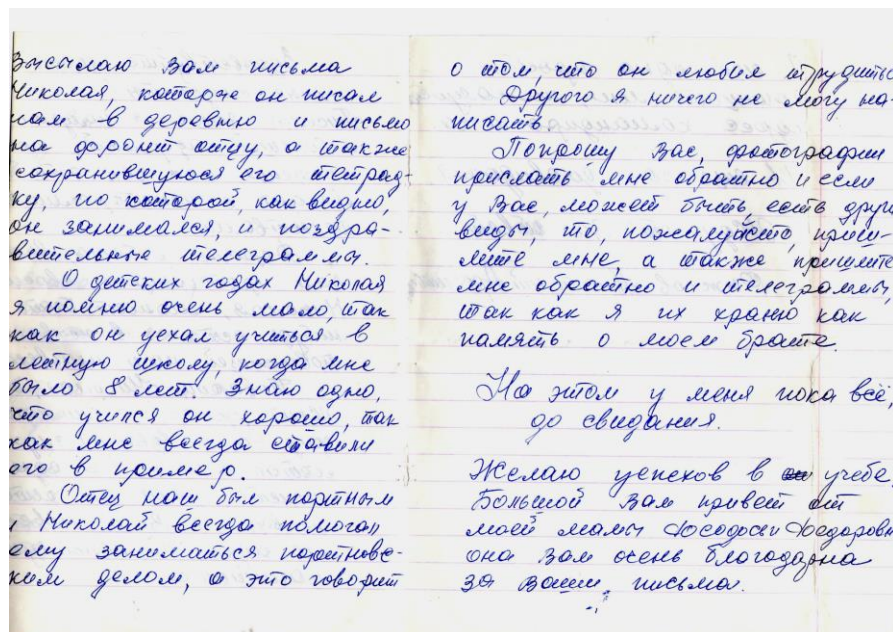 Высылаю Вам письма
Николая, которые он писал
нам в деревню и письмо
на фронт отцу, а также
сохранившуюся его тетрад-
ку, по которой, как видно,
он занимался, и поздра-
вительные телеграммы.
О детских годах Николая
я помню очень мало, так
как он уехал учиться в
летную школу, когда мне
было 8 лет. Знаю одно,
что учился он хорошо, так
как мне всегда ставили
его в пример.
Отец наш был портным
и Николай всегда помогал
ему заниматься портновс-
ким делом, а это говорит
о том, что он любил трудиться
Другого я ничего не могу на-
писать.
Попрошу Вас, фотографии
прислать мне обратно и если
у Вас, может быть, есть други
виды, то, пожалуйста, приш-
лите мне, а также пришлите
мне обратно и телеграммы,
так как я их храню как
память о моем брате.
На этом у меня пока всё,
до свидания.
Желаю успехов в учебе,
Большой Вам привет от
моей мамы Федоровн
она Вам очень благодарна
за Ваши письма.